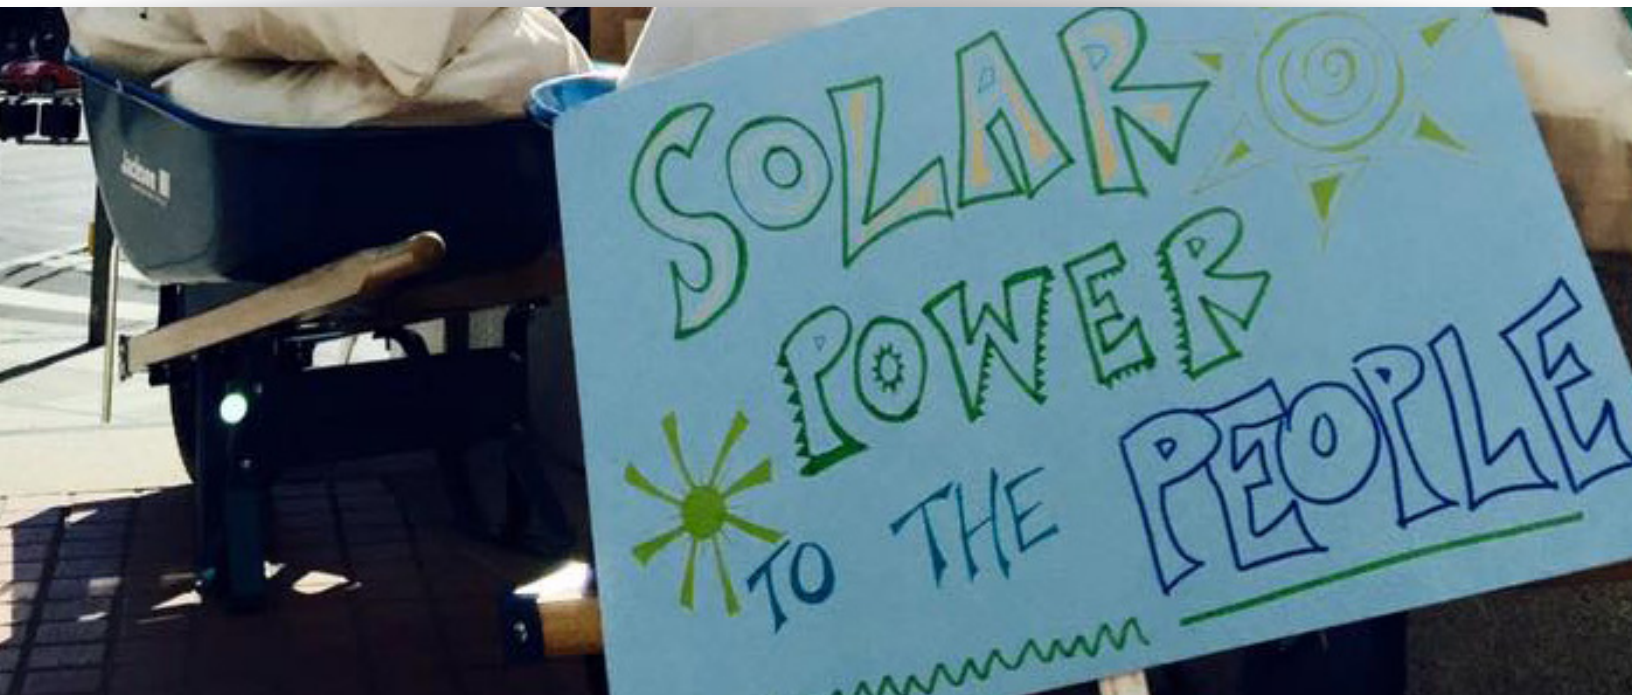 Jackson
SOLAR
POWER
TO THE PEOPLE